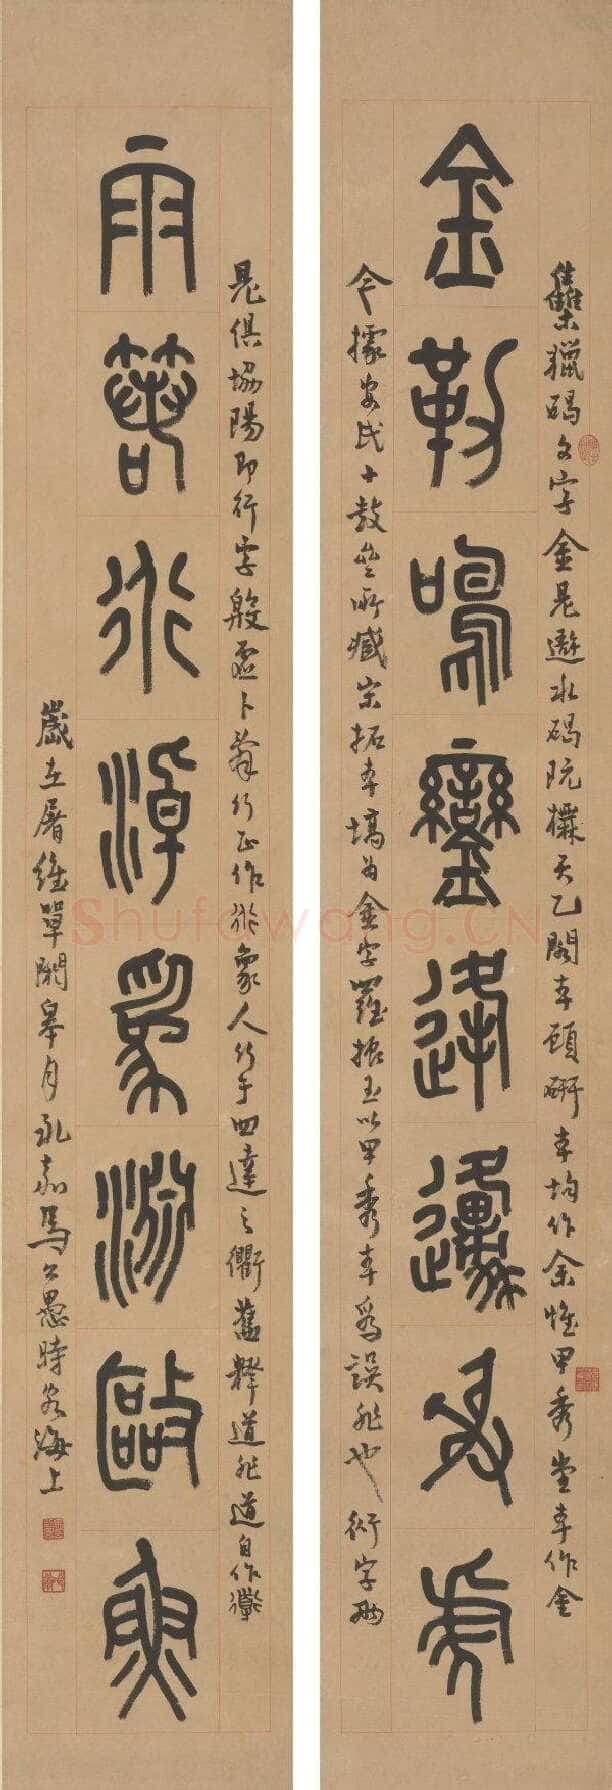 金勒鳴鑾邍虎
集獵碣文字金是遊水碣阮橅天乙閣本顧硏本均作余惟甲秀堂本作金
今據安氏十鼓齋所藏宋拓本塙為金字羅振玉以甲秀本為誤非也衍字兩
雨行淖為淵敺魚
見俱協陽即行字殷虛卜辭行正作象人行于四達之衢舊釋道非道自作
歲在屠維單閼皋月永嘉馬公愚時客海上
Shufawang.CN